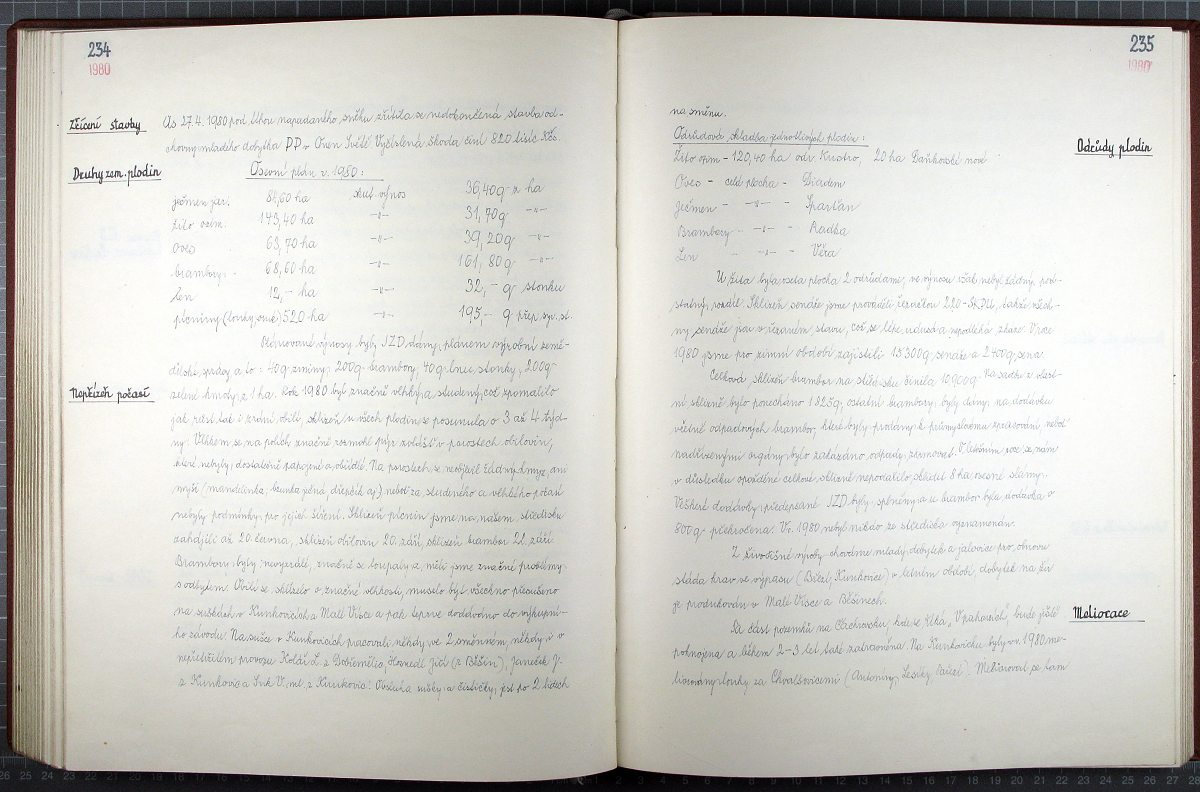 234
1980
Zřícení stavby
As 27.4.1980 pod tíhou napadaného sněhu zřítila se nedokončená stavba od-
chovny mladého dobytka DD v Onen Světě Vyčíslená škoda činí 820 tisíc Kčs.
Druhy zem. plodin
Osevní plán r. 1980:
ječmen jar. 84,60 ha skut. výnos 36,40 q z ha
žito ozim. 143,40 ha -"- 31,70 q -"-
oves 63,70 ha -"- 39,20 q -"-
brambory - 68,60 ha -"- 161,80 q -"-
len 12,- ha -"- 32,- q stonku
pícniny (louky, orné) 520 ha -"- 19,5,- q přep. sus. st.
Plánované výnosy byly JZD dány plánem výrobní země-
dělské správy a to: 40 q zrniny, 200 q brambory, 40 q lnu, stonky, 200 q
Nepřízeň počasí
zelené hmoty z 1 ha. Rok 1980 byl značně vlhký a studený, což zpomalilo
jak růst tak i zrání obilí, sklizeň u všech plodin se posunula o 3 až 4 týd-
ny. Vlhkem se na polích značně rozmohl pýr zvláště v porostech obilovin,
které nebyly dostatečně zapojené a ošidlé. Na porostech se neobjevil žádný hmyz, ani
myši (mandelinka, bzunka ječná, dřepčík aj.) neboť za studeného a vlhkého počasí
nebyly podmínky pro jejich šíření. Sklizeň pícnin jsme na našem středisku
zahájili až 20. června, sklizeň obilovin 20. září, sklizeň brambor 22. září.
Brambory byly nevyzrálé, značně se loupaly a měli jsme značné problémy
s odbytem. Obilí se sklízelo o značné vlhkosti, muselo být všechno přesušeno
na suškách v Kunkovicích a Malé Vísce a pak teprve dodáváno do výkupní-
ho závodu. Na sušce v Kunkovicích pracovali někdy ve 2 směnném, někdy i v
nepřetržitém provozu Kolář L. z Dobřemilic, Hosnedl Jiří (z Běšin), Janeček J.
z Kunkovic a Suk V. ml. z Kunkovic. Obsluha sušky a čističky jest po 2 lidech
235
1980
na směnu.
Odrůdy plodin
Odrůdová skladba jednotlivých plodin:
Žito ozim - 120,40 ha odr. Kustro, 20 ha Daňkovské nové
Oves - celá plocha - Diadem
Ječmen - -"- - Spartan
Brambory - -"- - Radka
Len - -"- - Věra
U žita byla oseta plocha 2 odrůdami, ve výnosu však nebyl žádný pod-
statný rozdíl. Sklizeň senáže jsme prováděli řezačkou 220-SKPU, takže všech-
ny senáže jsou v řezaném stavu, což se lépe udusá a nepodléhá zkáze. V roce
1980 jsme pro zimní období zajistili 15300 q senáže a 2400 q sena.
Celková sklizeň brambor na středisku činila 10900 q. Na sadbu z vlast-
ní sklizně bylo ponecháno 1825 q, ostatní brambory byly dány na dodávku
včetně odpadových brambor, které byly prodány k průmyslovému zpracování, neboť
nadřízenými orgány bylo zakázáno odpady zkrmovat. V letošním roce se nám
v důsledku opožděné celkové sklizně nepodařilo sklidit 8 ha ovesné slámy.
Veškeré dodávky předepsané JZD byly splněny a u brambor byla dodávka o
800 q překročena. V r. 1980 nebyl nikdo ze střediska vyznamenán.
Z živočišné výroby chováme mladý dobytek a jalovice pro obnovu
stáda krav ve výpasu (Bílzi, Kunkovice) v letním období, dobytek na žír
je produkován v Malé Vísce a Běšinech.
Meliorace
Za část pozemků na Čachrovsku, kde se říká „V prahorách" bude ještě
pohnojena a během 2-3 let také zatravněna. Na Kunkovicku byly v r. 1980 me-
liorovány louky za Chvalšovicemi (Antoníny, Lesíky, Paříze). Meliorovat se tam